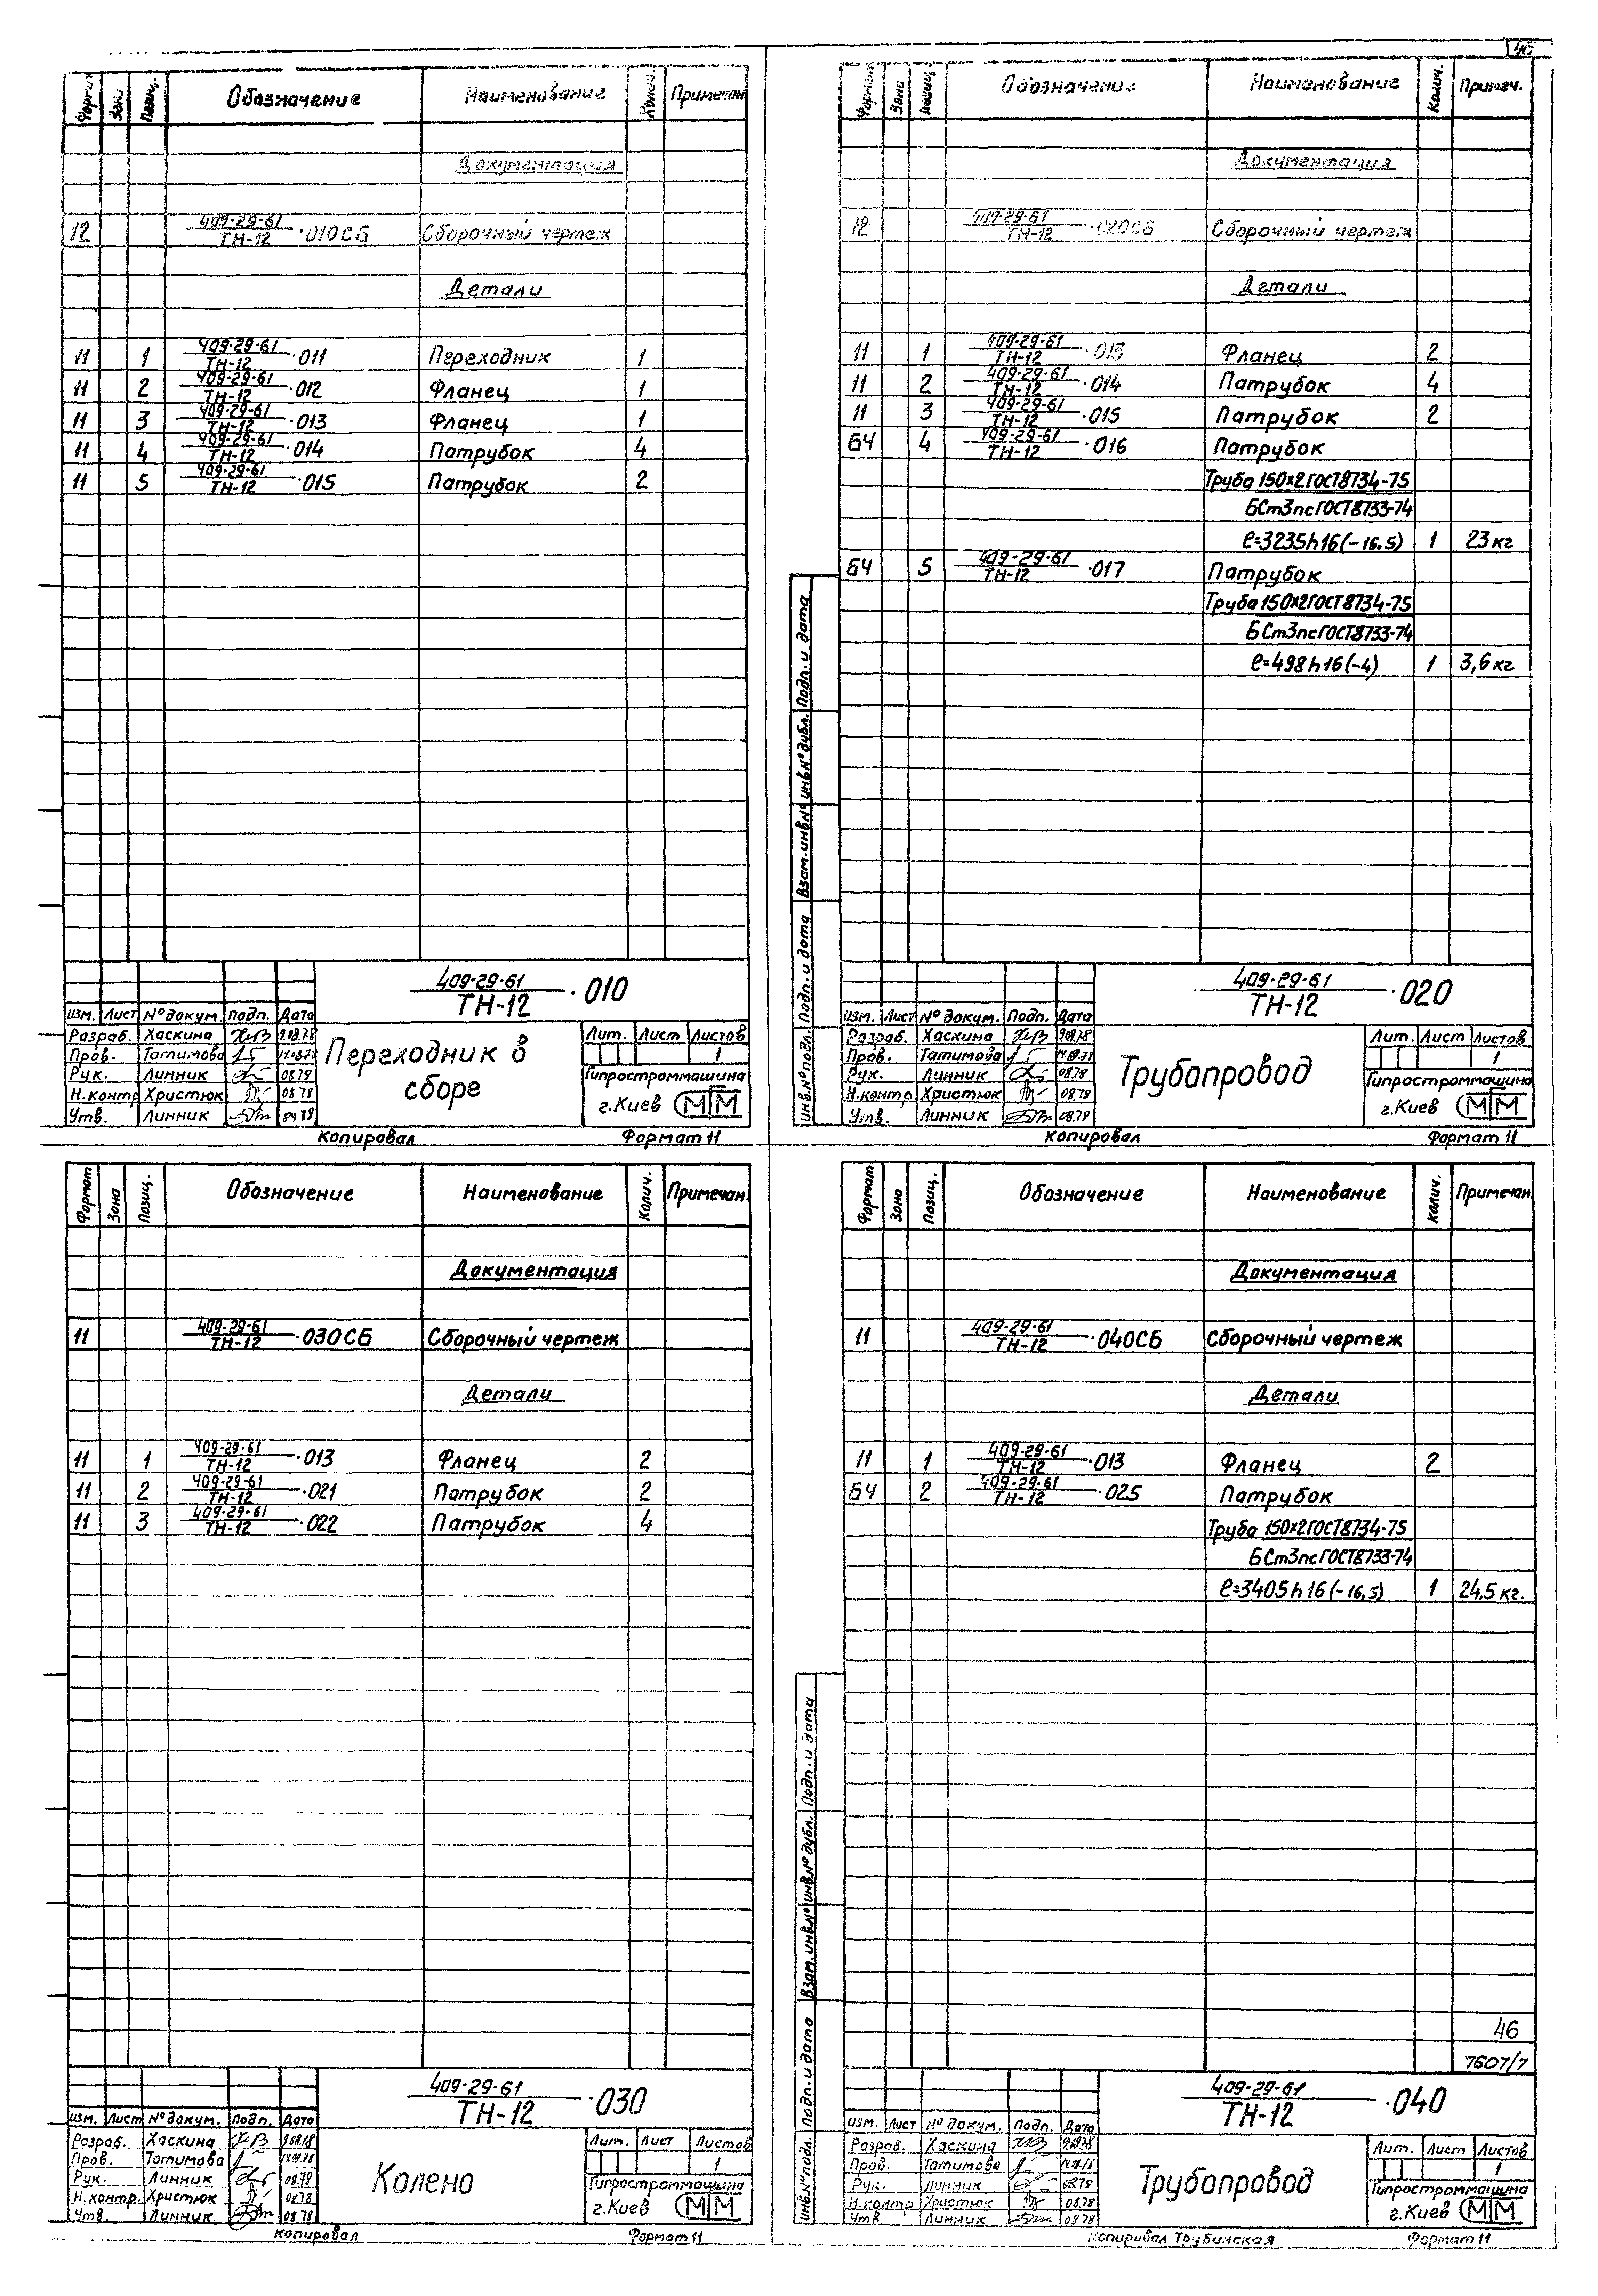 Формат Зона Позиц. Обозначение Наименование Колич. Примечан.
Документация
12 409-29-61/ТН-12 ·010СБ Сборочный чертеж
Детали
11 1 409-29-61/ТН-12 ·011 Переходник 1
11 2 409-29-61/ТН-12 ·012 Фланец 1
11 3 409-29-61/ТН-12 ·013 Фланец 1
11 4 409-29-61/ТН-12 ·014 Патрубок 4
11 5 409-29-61/ТН-12 ·015 Патрубок 2
409-29-61/ТН-12 ·010
Изм. Лист № докум. Подп. Дата
Разраб. Хаскина
Пров. Татимова
Рук. Линник 08.79
Н.контр Христюк 08.78
Утв. Линник
Переходник в
сборе
Лит. Лист Листов
1
Гипростроммашина
г.Киев ММ
Копировал Формат 11
Формат Зона Позиц. Обозначение Наименование Колич. Примеч.
Документация
12 409-29-61/ТН-12 ·020СБ Сборочный чертеж
Детали
11 1 409-29-61/ТН-12 ·013 Фланец 2
11 2 409-29-61/ТН-12 ·014 Патрубок 4
11 3 409-29-61/ТН-12 ·015 Патрубок 2
БЧ 4 409-29-61/ТН-12 ·016 Патрубок
Труба 150×2 ГОСТ 8734-75
БСт3пс ГОСТ 8733-74
ℓ=3235h16(-16.5) 1 23 кг
БЧ 5 409-29-61/ТН-12 ·017 Патрубок
Труба 150×2 ГОСТ 8734-75
БСт3пс ГОСТ 8733-74
ℓ=498h16(-4) 1 3,6 кг
Инв.№ подл. Подп. и дата Взам.инв.№ Инв.№ дубл. Подп. и дата
409-29-61/ТН-12 ·020
Изм. Лист № докум. Подп. Дата
Разраб. Хаскина
Пров. Татимова
Рук. Линник 08.79
Н.контр Христюк 08.78
Утв. Линник 08.79
Трубопровод
Лит. Лист Листов
1
Гипростроммашина
г.Киев ММ
Копировал Формат 11
Формат Зона Позиц. Обозначение Наименование Колич. Примечан.
Документация
11 409-29-61/ТН-12 ·030СБ Сборочный чертеж
Детали
11 1 409-29-61/ТН-12 ·013 Фланец 2
11 2 409-29-61/ТН-12 ·021 Патрубок 2
11 3 409-29-61/ТН-12 ·022 Патрубок 4
409-29-61/ТН-12 ·030
Изм. Лист № докум. Подп. Дата
Разраб. Хаскина
Пров. Татимова
Рук. Линник 08.79
Н.контр. Христюк 08.78
Утв. Линник 08.78
Колено
Лит. Лист Листов
1
Гипростроммашина
г.Киев ММ
Копировал Формат 11
Формат Зона Позиц. Обозначение Наименование Колич. Примечан.
Документация
11 409-29-61/ТН-12 ·040СБ Сборочный чертеж
Детали
11 1 409-29-61/ТН-12 ·013 Фланец 2
БЧ 2 409-29-61/ТН-12 ·025 Патрубок
Труба 150×2 ГОСТ 8734-75
БСт3пс ГОСТ 8733-74
ℓ=3405h16(-16,5) 1 24,5 кг.
46
7607/7
Инв.№ подл. Подп. и дата Взам.инв.№ Инв.№ дубл. Подп. и дата
409-29-61/ТН-12 ·040
Изм. Лист № докум. Подп. Дата
Разраб. Хаскина
Пров. Татимова
Рук. Линник 08.79
Н.контр Христюк 08.78
Утв. Линник 08.78
Трубопровод
Лит. Лист Листов
1
Гипростроммашина
г.Киев ММ
Копировал Трубинская Формат 11